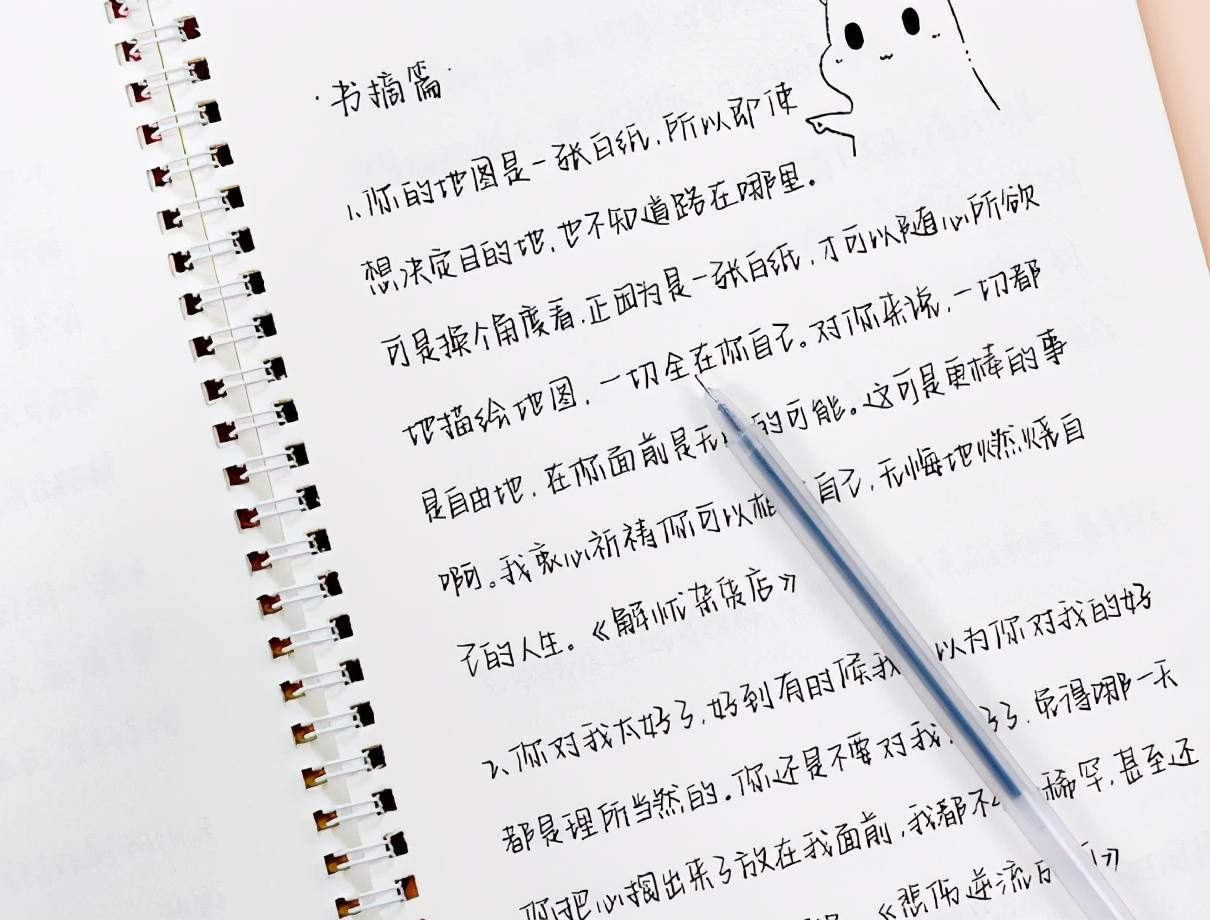 ·书摘篇·
1、你的地图是一张白纸,所以即使
想决定目的地,也不知道路在哪里。
可是换个角度看,正因为是一张白纸,才可以随心所欲
地描绘地图,一切全在你自己。对你来说,一切都
是自由地,在你面前是无的可能。这可是更棒的事
啊。我衷心祈祷你可以相自己,无悔地燃烧自
己的人生。《解忧杂货店》
2、你对我太好了,好到有时候我以为你对我的好
都是理所当然的。你还是不要对我了,免得哪一天
你把心掏出来了放在我面前,我都不稀罕,甚至还
《悲伤逆流》